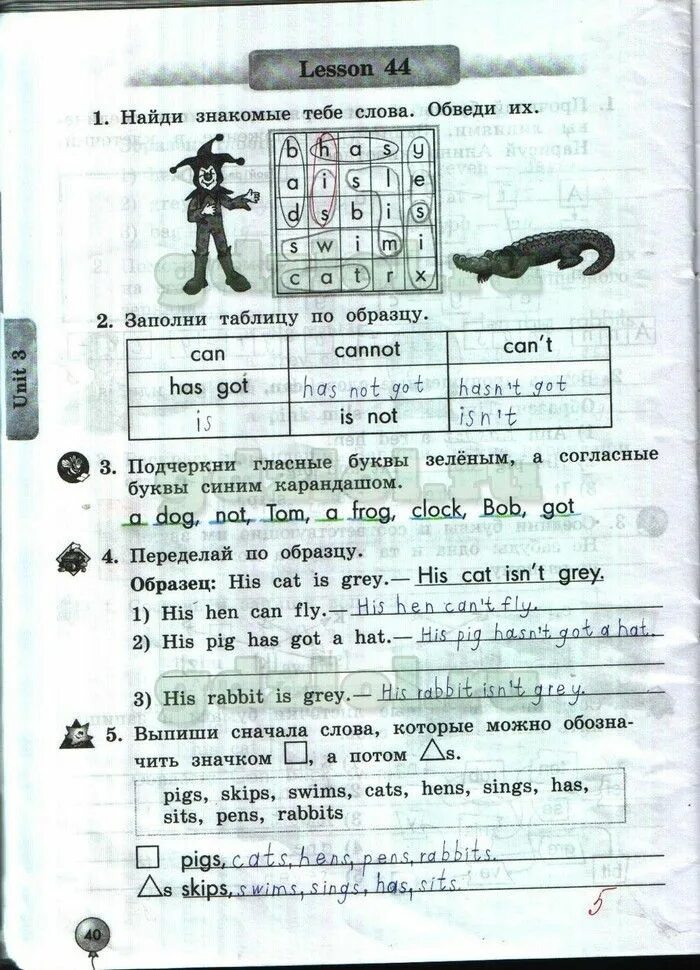 Lesson 44
1. Найди знакомые тебе слова. Обведи их.
b h a s y
a i s l e
d s b i s
s w i m i
c a t r x
2. Заполни таблицу по образцу.
can cannot can't
has got has not got hasn't got
is is not isn't
Unit 3
3. Подчеркни гласные буквы зелёным, а согласные
буквы синим карандашом.
a dog, not, Tom, a frog, clock, Bob, got
4. Переделай по образцу.
Образец: His cat is grey.— His cat isn't grey.
1) His hen can fly.— His hen can't fly.
2) His pig has got a hat.— His pig hasn't got a hat.
3) His rabbit is grey.— His rabbit isn't grey.
5. Выпиши сначала слова, которые можно обозна-
чить значком □, а потом △s.
pigs, skips, swims, cats, hens, sings, has,
sits, pens, rabbits
□ pigs, cats, hens, pens, rabbits.
△s skips, swims, sings, has, sits.
5
40